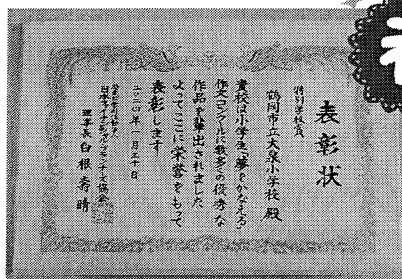 表彰状
特別学校賞
鶴岡市立大泉小学校 殿
貴校は小学生「夢をかなえる」
作文コンクールに数多くの優秀な
作品を輩出されました
よってここに栄誉をもって
表彰します
二〇二〇年一月三十日
日本ファイナンシャル・プランナーズ協会
理事長 白根壽晴